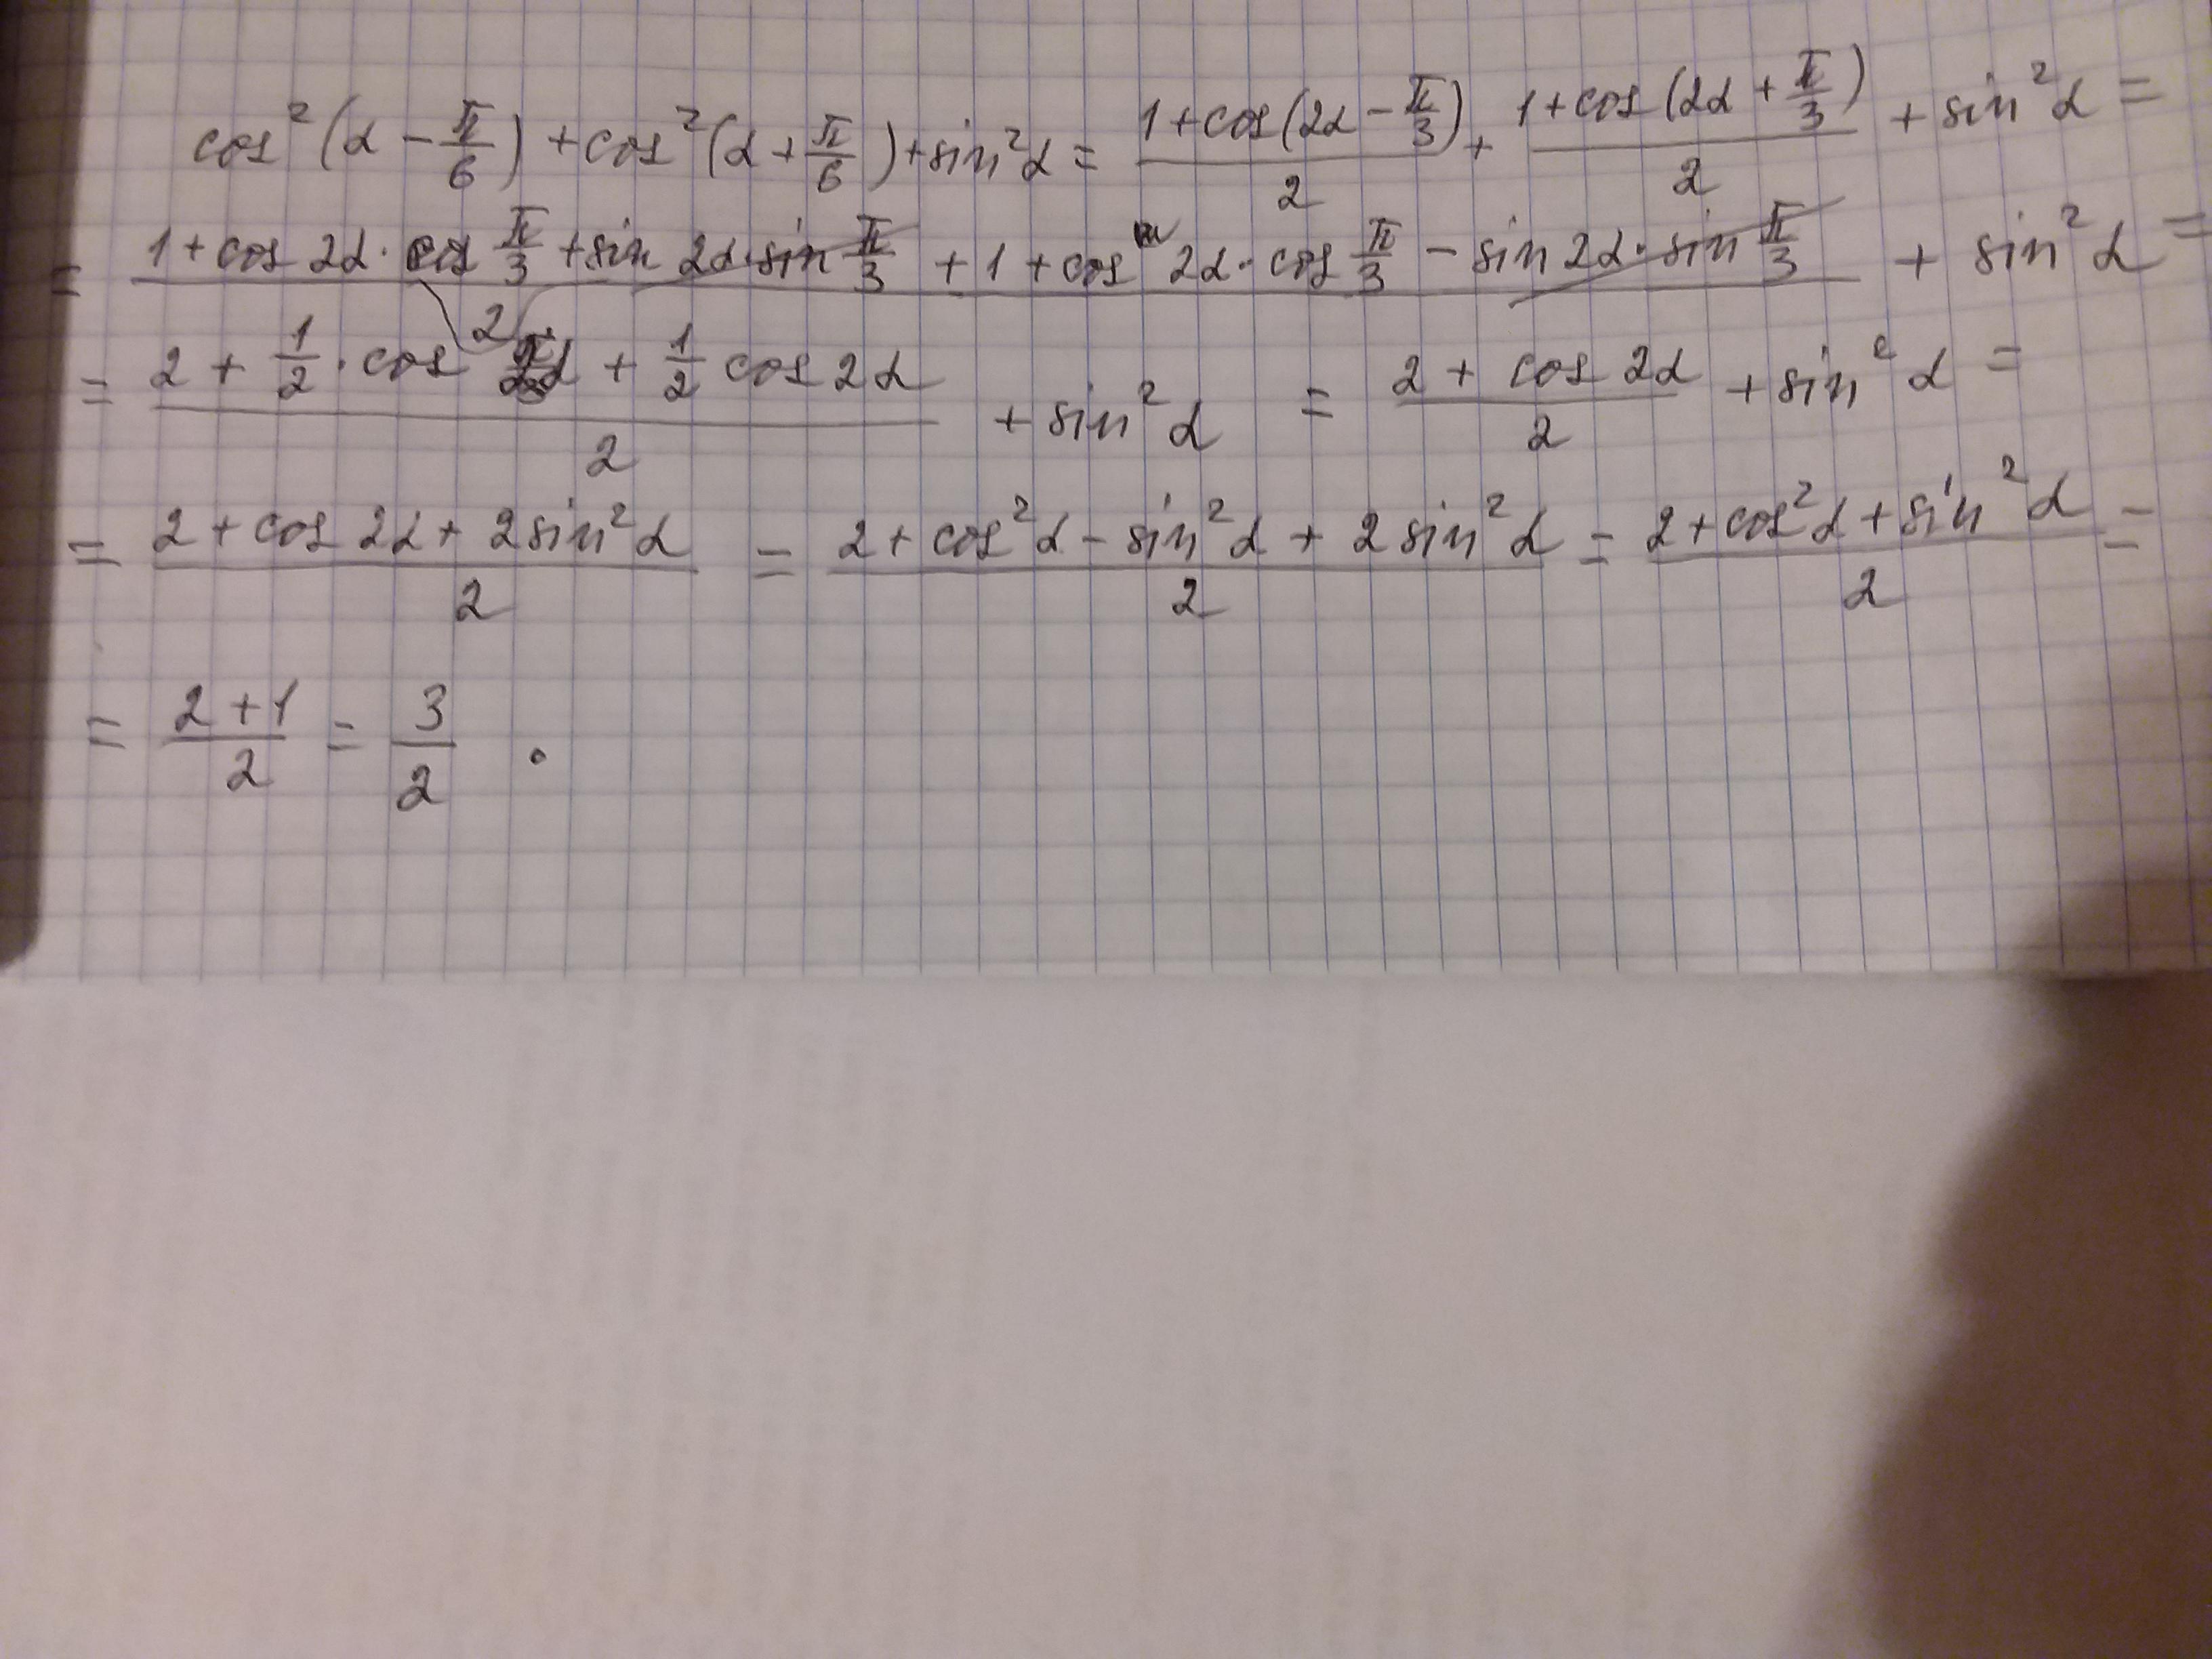 cos²(α - π/6) + cos²(α + π/6) + sin²α = (1 + cos(2α - π/3))/2 + (1 + cos(2α + π/3))/2 + sin²α =
= (1 + cos 2α · cos π/3 + sin 2α · sin π/3 + 1 + cos 2α · cos π/3 - sin 2α · sin π/3)/2 + sin²α =
= (2 + 1/2 · cos 2α + 1/2 cos 2α)/2 + sin²α = (2 + cos 2α)/2 + sin²α =
= (2 + cos 2α + 2 sin²α)/2 = (2 + cos²α - sin²α + 2 sin²α)/2 = (2 + cos²α + sin²α)/2 =
= (2 + 1)/2 = 3/2 .